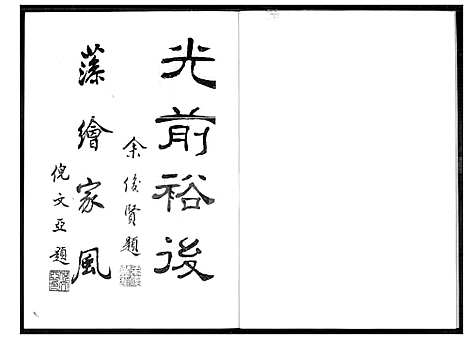 光前裕後
余俊賢題
藻繪家風
倪文亞題